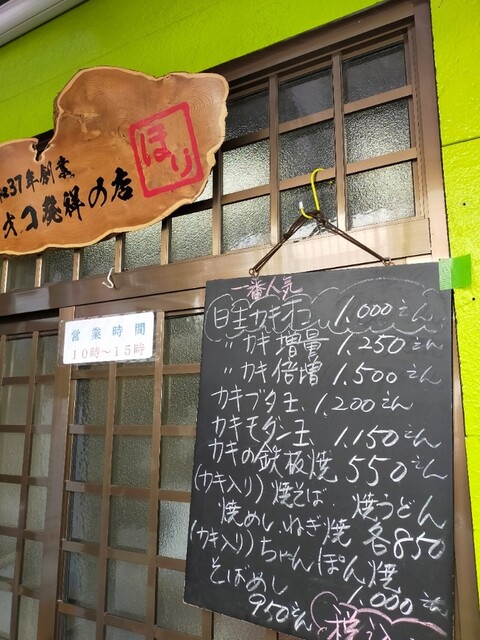 ほり
37年創業
カキオコ発祥の店
営業時間
10時~15時
一番人気
日生カキオコ 1,000えん
〃 カキ増量 1,250えん
〃 カキ倍増 1,500えん
カキブタ玉 1,200えん
カキモダン玉 1,150えん
カキの鉄板焼 550えん
(カキ入り)焼そば 焼うどん
焼めし、ねぎ焼 各850
(カキ入り)ちゃんぽん焼
1,000えん
そばめし
950えん
税込